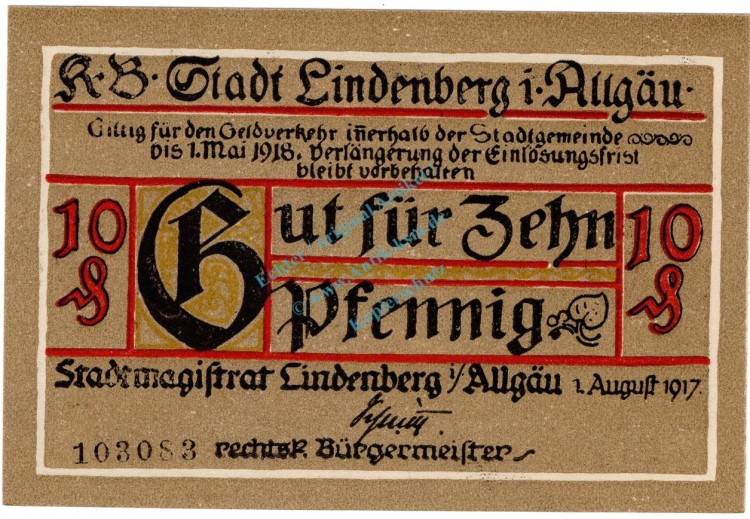 K. B. Stadt Lindenberg i. Allgäu.
Giltig für den Geldverkehr iñerhalb der Stadtgemeinde
bis 1. Mai 1918. Verlängerung der Einlösungsfrist
bleibt vorbehalten
10 ₰
Gut für Zehn
Pfennig.
10 ₰
Stadtmagistrat Lindenberg i/Allgäu 1. August 1917.
103083 rechtsk. Bürgermeister